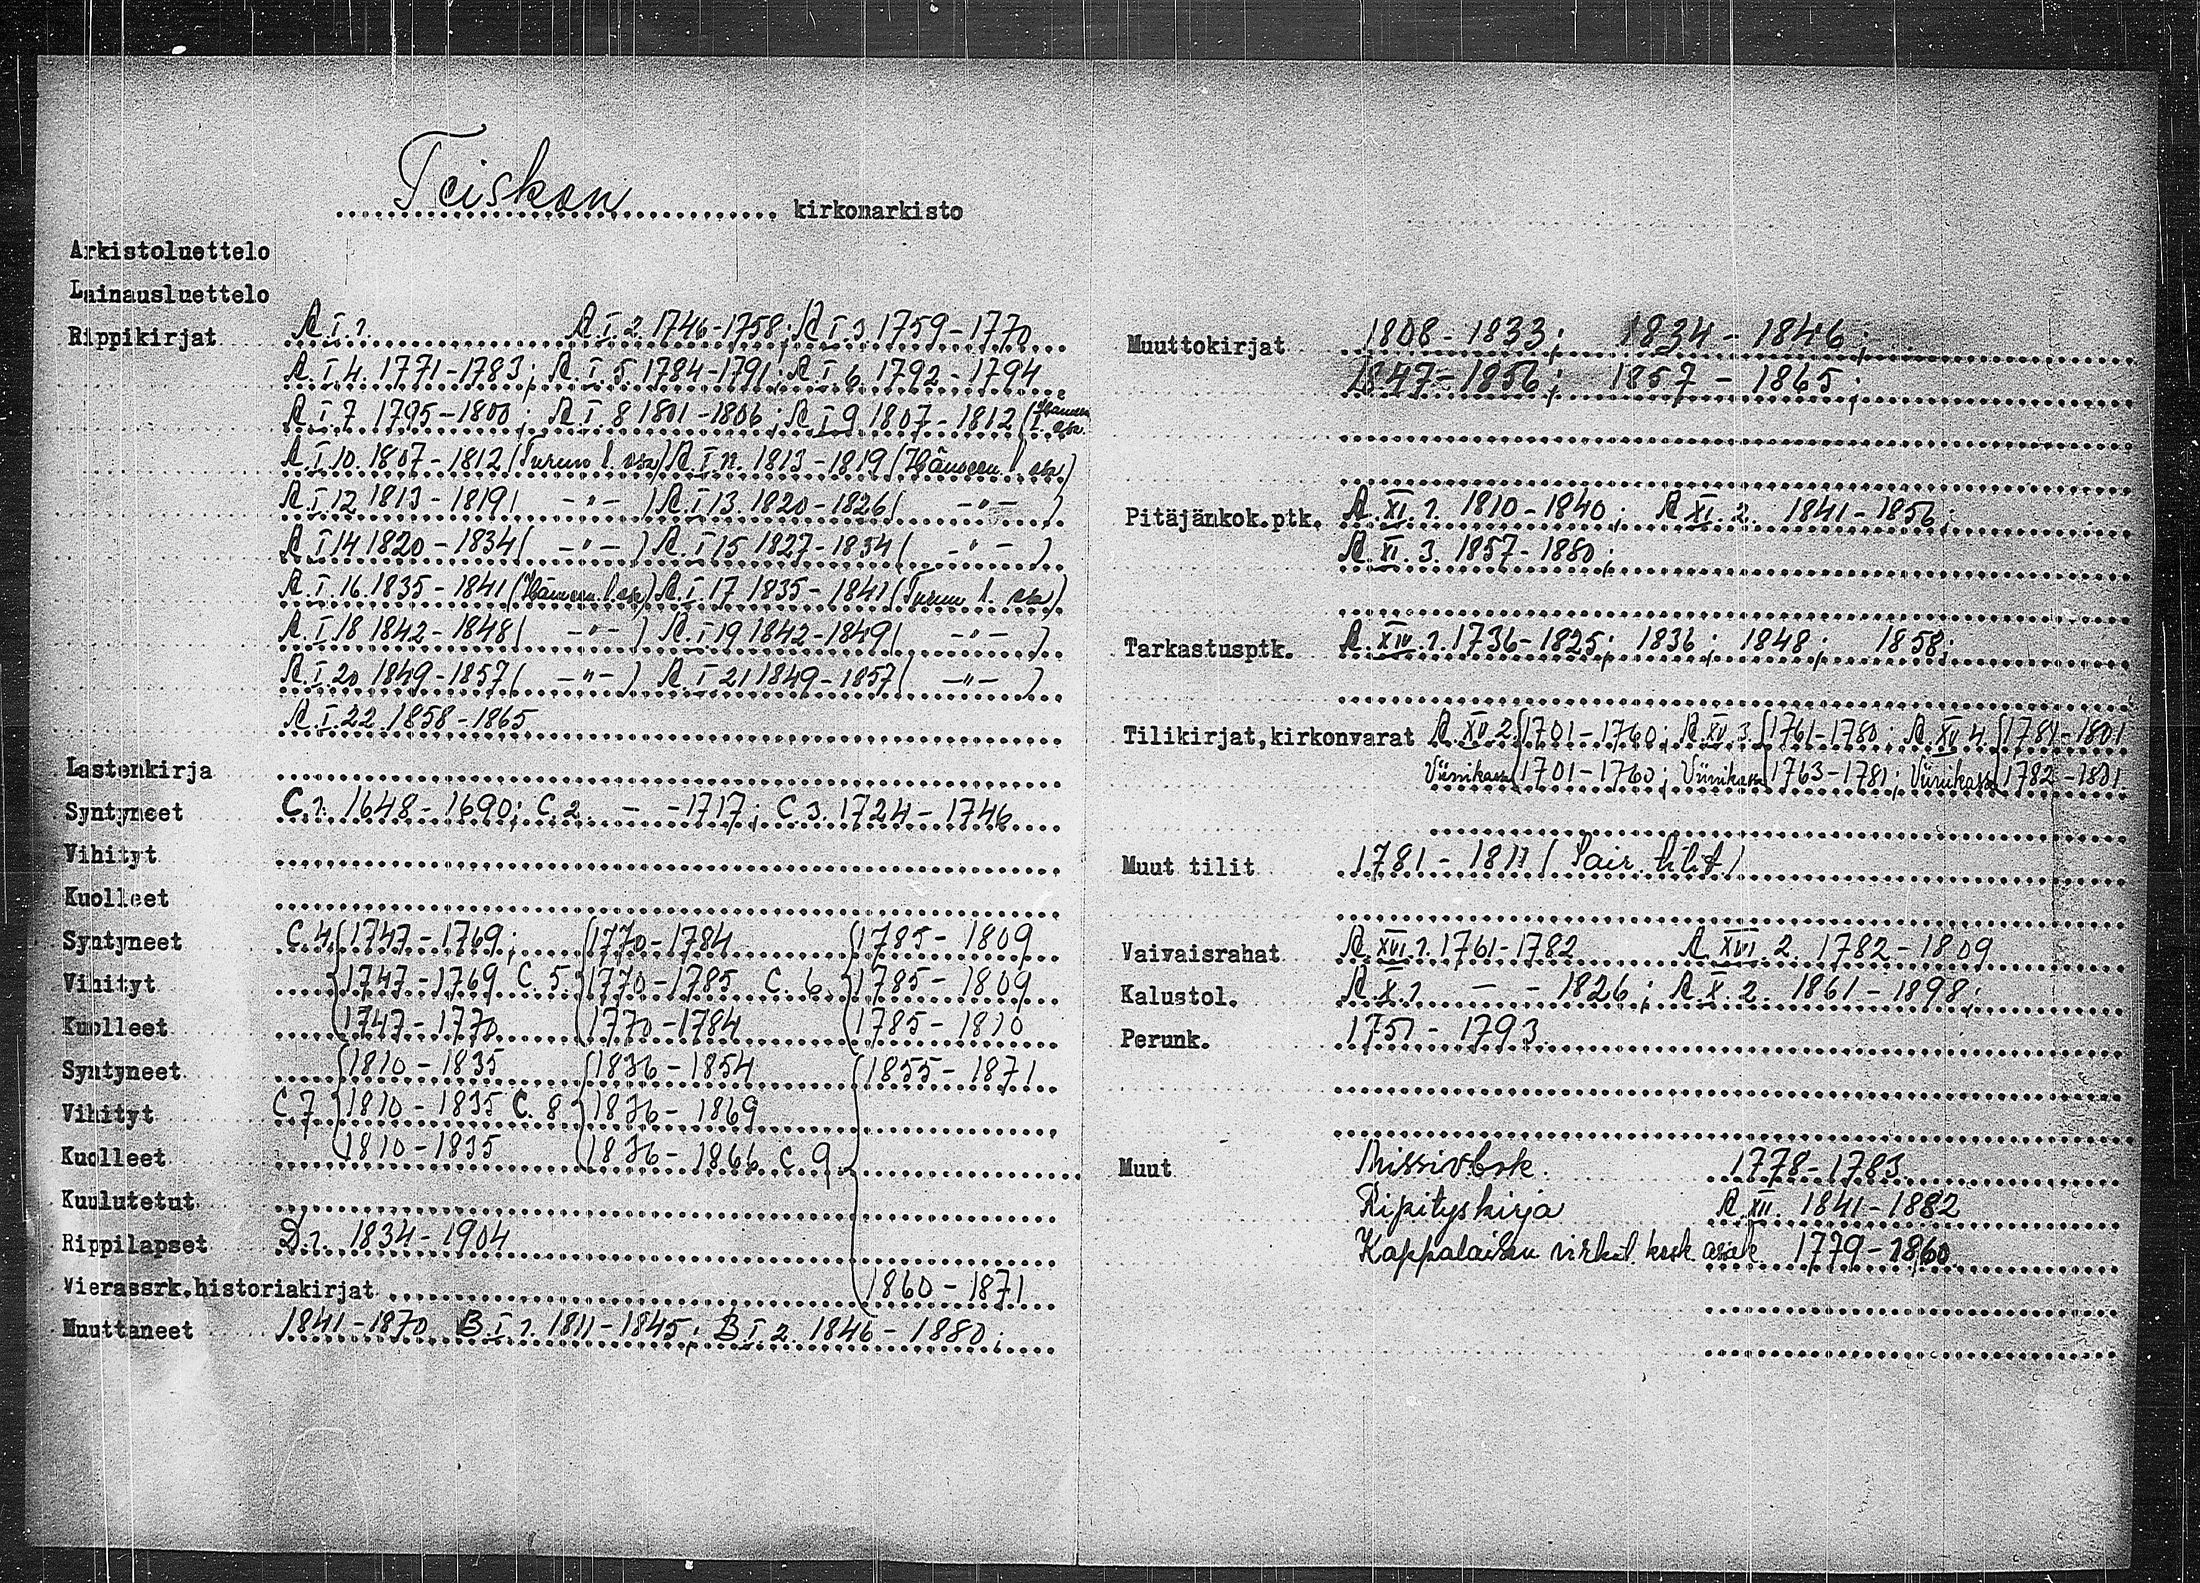 Teiskon kirkonarkisto
Arkistoluettelo
Lainausluettelo
Rippikirjat A.I.1. A.I.2 1746-1758; A.I.3 1759-1770
A.I.4. 1771-1783; A.I.5. 1784-1791; A.I.6. 1792-1794
A.I.7 1795-1800; A.I.8 1801-1806; A.I.9 1807-1812 (Hämeen l. osa
A.I.10. 1807-1812 (Turun l. osa) A.I.11. 1813-1819 (Hämeen l. osa)
A.I.12 1813-1819 ( -"- ) A.I.13. 1820-1826 ( -"- )
A.I.14 1820-1834 ( -"- ) A.I.15 1827-1834 ( -"- )
A.I.16. 1835-1841 (Hämeen l. osa) A.I.17 1835-1841 (Turun l. osa)
A.I.18 1842-1848 ( -"- ) A.I.19 1842-1849 ( -"- )
A.I.20 1849-1857 ( -"- ) A.I.21 1849-1857 ( -"- )
A.I.22. 1858-1865
Lastenkirja
Syntyneet C.1. 1648-1690; C.2. - -1717; C.3. 1724-1746
Vihityt
Kuolleet
Syntyneet C.4. 1747-1769; 1770-1784 1785-1809
Vihityt 1747-1769 C.5. 1770-1785 C.6. 1785-1809
Kuolleet 1747-1770 1770-1784 1785-1810
Syntyneet 1810-1835 1836-1854 1855-1871
Vihityt C.7 1810-1835 C.8 1836-1869
Kuolleet 1810-1835 1836-1866 C.9
Kuulutetut
Rippilapset D.1. 1834-1904
Vierassrk.historiakirjat 1860-1871
Muuttaneet 1841-1870 B.I.1. 1811-1845; B.I.2. 1846-1880;
Muuttokirjat 1808-1833; 1834-1846;
1847-1856; 1857-1865;
Pitäjänkok.ptk. A.XI.1. 1810-1840; A.XI.2. 1841-1856;
A.XI.3. 1857-1880;
Tarkastusptk. A.XIV.1. 1736-1825; 1836; 1848; 1858;
Tilikirjat,kirkonvarat A.XV.2. 1701-1760; A.XV.3. 1761-1780; A.XV.4. 1781-1801
Viinikassa 1701-1760; Viinikassa 1763-1781; Viinikassa 1782-1801
Muut tilit 1781-1811 (Sair. tilit)
Vaivaisrahat A.XVI.1. 1761-1782 A.XVI.2. 1782-1809
Kalustol. A.X.1 - - 1826; A.X.2. 1861-1898;
Perunk. 1751-1793
Muut Missivbok. 1778-1783
Ripityskirja A.XII. 1841-1882
Kappalaisen virkat. kosk. asiak. 1779-1860